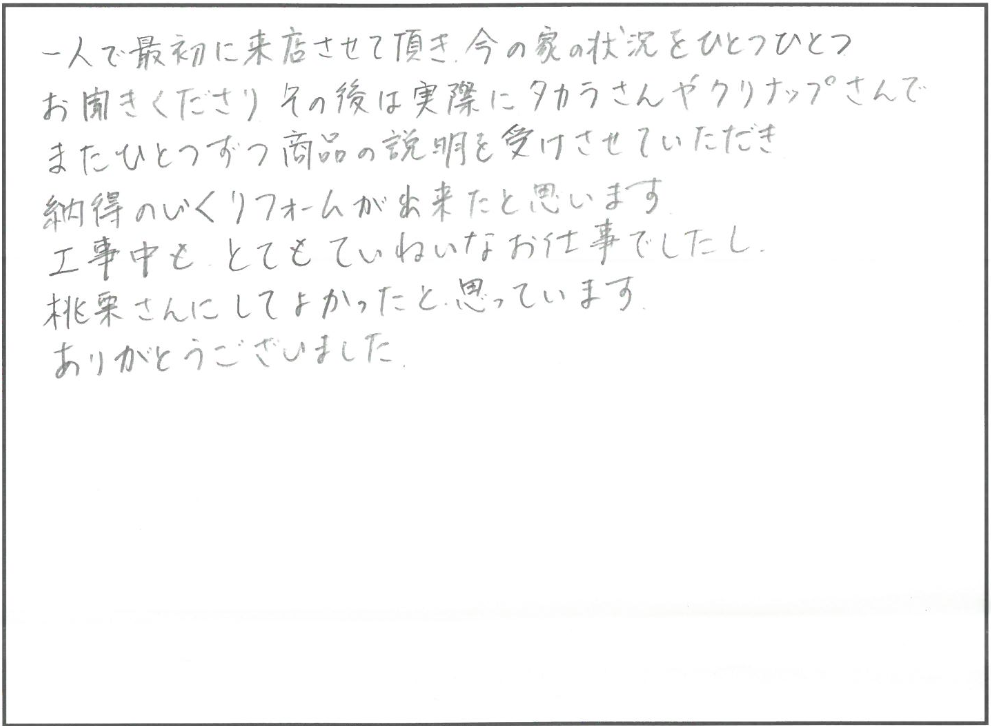 一人で最初に来店させて頂き、今の家の状況をひとつひとつ
お聞きくださり その後は実際にタカラさんやクリナップさんで
またひとつずつ商品の説明を受けさせていただき
納得のいくリフォームが出来たと思います
工事中も とてもていねいなお仕事でしたし、
桃栗さんにしてよかったと、思っています。
ありがとうございました。